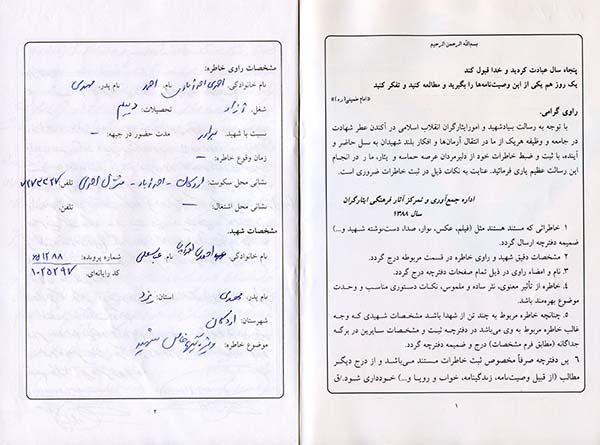 بسم‌الله الرحمن الرحیم
پنجاه سال عبادت کردید و خدا قبول کند
یک روز هم یکی از این وصیت‌نامه‌ها را بگیرید و مطالعه کنید و تفکر کنید
«امام خمینی(ره)»
راوی گرامی،
با توجه به رسالت بنیادشهید و امورایثارگران انقلاب اسلامی در آکندن عطر شهادت
در جامعه و وظیفه هریک از ما در انتقال آرمان‌ها و افکار بلند شهیدان به نسل حاضر و
آینده، با ثبت و ضبط خاطرات خود از دلیرمردان عرصه حماسه و ایثار، ما را در انجام
این رسالت عظیم یاری فرمائید. عنایت به نکات ذیل در ثبت خاطرات ضروری است.
اداره جمع‌آوری و تمرکز آثار فرهنگی ایثارگران
سال ۱۳۸۸
۱ خاطراتی که مستند هستند مثل (فیلم، عکس، نوار، صدا، دست‌نوشته شهید و...)
ضمیمه دفترچه ارسال گردد.
۲ مشخصات دقیق شهید و راوی خاطره در قسمت مربوطه درج گردد.
۳ نام و امضاء راوی در ذیل تمام صفحات دفترچه درج گردد.
۴ خاطره از تأثیر معنوی، نثر ساده و ملموس، نکات دستوری مناسب و وحدت
موضوع بهره‌مند باشد.
۵ چنانچه خاطره مربوط به چند تن از شهدا باشد مشخصات شهیدی که وجه
غالب خاطره مربوط به وی می‌باشد در دفترچه ثبت و مشخصات سایرین در برگه
جداگانه (مطابق فرم مشخصات) درج و ضمیمه دفترچه گردد.
۶ این دفترچه صرفاً مخصوص ثبت خاطرات مستند می‌باشد و از درج دیگر
مطالب (از قبیل وصیت‌نامه، زندگینامه، خواب و رویا و...) خودداری شود.
۱
مشخصات راوی خاطره:
نام خانوادگی: احمدی احمدآبادی نام: احمد نام پدر: مهدی
شغل: آزاد تحصیلات: دیپلم
نسبت با شهید: برادر مدت حضور در جبهه: –
زمان وقوع خاطره: –
نشانی محل سکونت: اردکان – احمدآباد – منزل احمدی تلفن:
نشانی محل اشتغال: – تلفن:
مشخصات شهید:
نام خانوادگی: احمدی احمدآبادی نام: عباسعلی شماره پرونده:
کد رایانه‌ای: 1025297
نام پدر: مهدی استان: یزد
شهرستان: اردکان
موضوع خاطره: ویژگیهای خاص شهید
۲